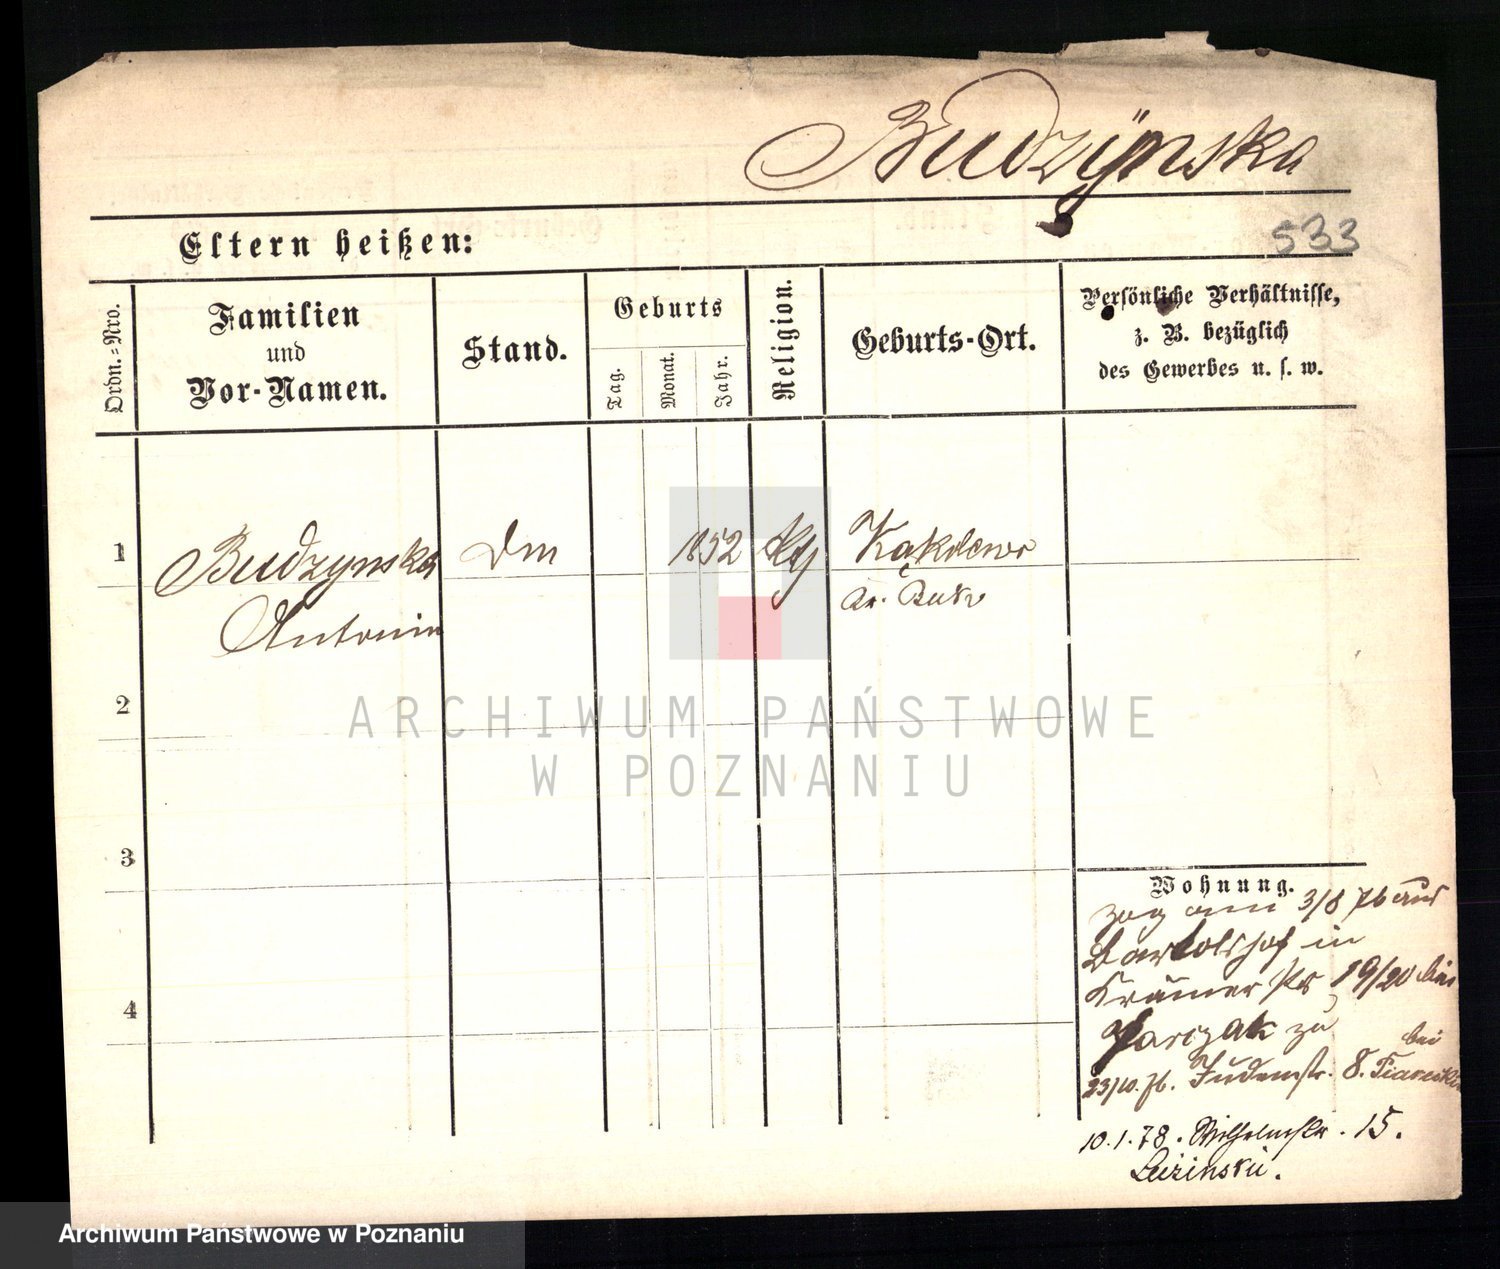 Budzÿnska
533
Eltern heißen:
Ordn.-Nro.
Familien
und
Vor-Namen.
Stand.
Geburts
Tag.
Monat.
Jahr.
Religion.
Geburts-Ort.
Persönliche Verhältnisse,
z. B. bezüglich
des Gewerbes u. s. w.
1
Budzynska
Antonin
1852
Kąkolewo
Kr. Buk
2
3
4
Wohnung.
zog am 3/8 76 aus
Bartolshof in
Krämerstr 19/20 bei
zu
23/10. 76. Judenstr. 8. bei
10.1.78. Wilhelmstr. 15.
ARCHIWUM PAŃSTWOWE
W POZNANIU
Archiwum Państwowe w Poznaniu